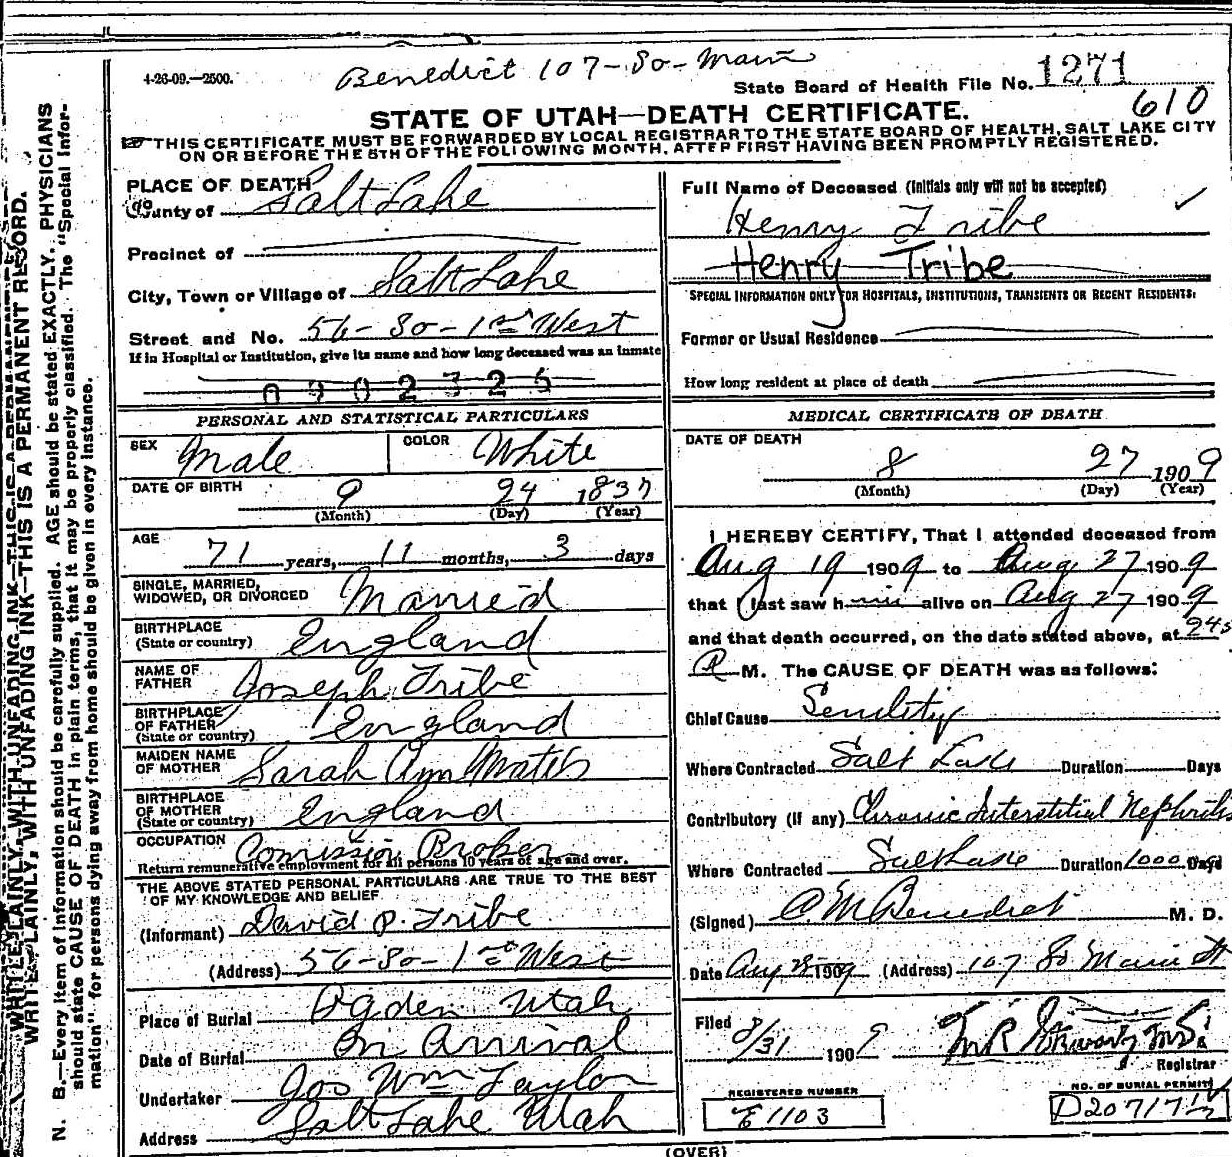 4-26-09.—2500.
Benedict 107-So-Main
State Board of Health File No. 1271
610
STATE OF UTAH—DEATH CERTIFICATE.
THIS CERTIFICATE MUST BE FORWARDED BY LOCAL REGISTRAR TO THE STATE BOARD OF HEALTH, SALT LAKE CITY
ON OR BEFORE THE 5TH OF THE FOLLOWING MONTH, AFTER FIRST HAVING BEEN PROMPTLY REGISTERED.
WRITE PLAINLY, WITH UNFADING INK—THIS IS A PERMANENT RECORD.
N. B.—Every item of information should be carefully supplied. AGE should be stated EXACTLY. PHYSICIANS
should state CAUSE OF DEATH in plain terms, that it may be properly classified. The "Special Infor-
mation" for persons dying away from home should be given in every instance.
PLACE OF DEATH
County of Salt Lake
Precinct of
City, Town or Village of Salt Lake
Street and No. 56-So-1st West
If in Hospital or Institution, give its name and how long deceased was an inmate
0902325
PERSONAL AND STATISTICAL PARTICULARS
SEX Male COLOR White
DATE OF BIRTH 9 24 1837
(Month) (Day) (Year)
AGE 71 years, 11 months, 3 days
SINGLE, MARRIED,
WIDOWED, OR DIVORCED Married
BIRTHPLACE
(State or country) England
NAME OF
FATHER Joseph Tribe
BIRTHPLACE
OF FATHER
(State or country) England
MAIDEN NAME
OF MOTHER Sarah Ann
BIRTHPLACE
OF MOTHER
(State or country) England
OCCUPATION Comission Broker
Return remunerative employment for all persons 10 years of age and over.
THE ABOVE STATED PERSONAL PARTICULARS ARE TRUE TO THE BEST
OF MY KNOWLEDGE AND BELIEF
(Informant) David P. Tribe
(Address) 56-So-1st West
Place of Burial Ogden Utah
Date of Burial On Arrival
Undertaker Jos Wm Taylor
Address Salt Lake Utah
Full Name of Deceased (Initials only will not be accepted)
Henry Tribe
Henry Tribe
SPECIAL INFORMATION ONLY FOR HOSPITALS, INSTITUTIONS, TRANSIENTS OR RECENT RESIDENTS:
Former or Usual Residence
How long resident at place of death
MEDICAL CERTIFICATE OF DEATH
DATE OF DEATH
8 27 1909
(Month) (Day) (Year)
I HEREBY CERTIFY, That I attended deceased from
Aug 19 1909 to Aug 27 1909
that I last saw him alive on Aug 27 1909
and that death occurred, on the date stated above, at 245
P M. The CAUSE OF DEATH was as follows:
Chief Cause Senility
Where Contracted Salt Lake Duration Days
Contributory (if any) Chronic Interstitial Nephritis
Where Contracted Salt Lake Duration 1000 Days
(Signed) C M Benedict M. D.
Date Aug 28 1909 (Address) 107 So Main St
Filed 8/31 1909
Registrar
REGISTERED NUMBER
E 1103
NO. OF BURIAL PERMIT
D20717
(OVER)